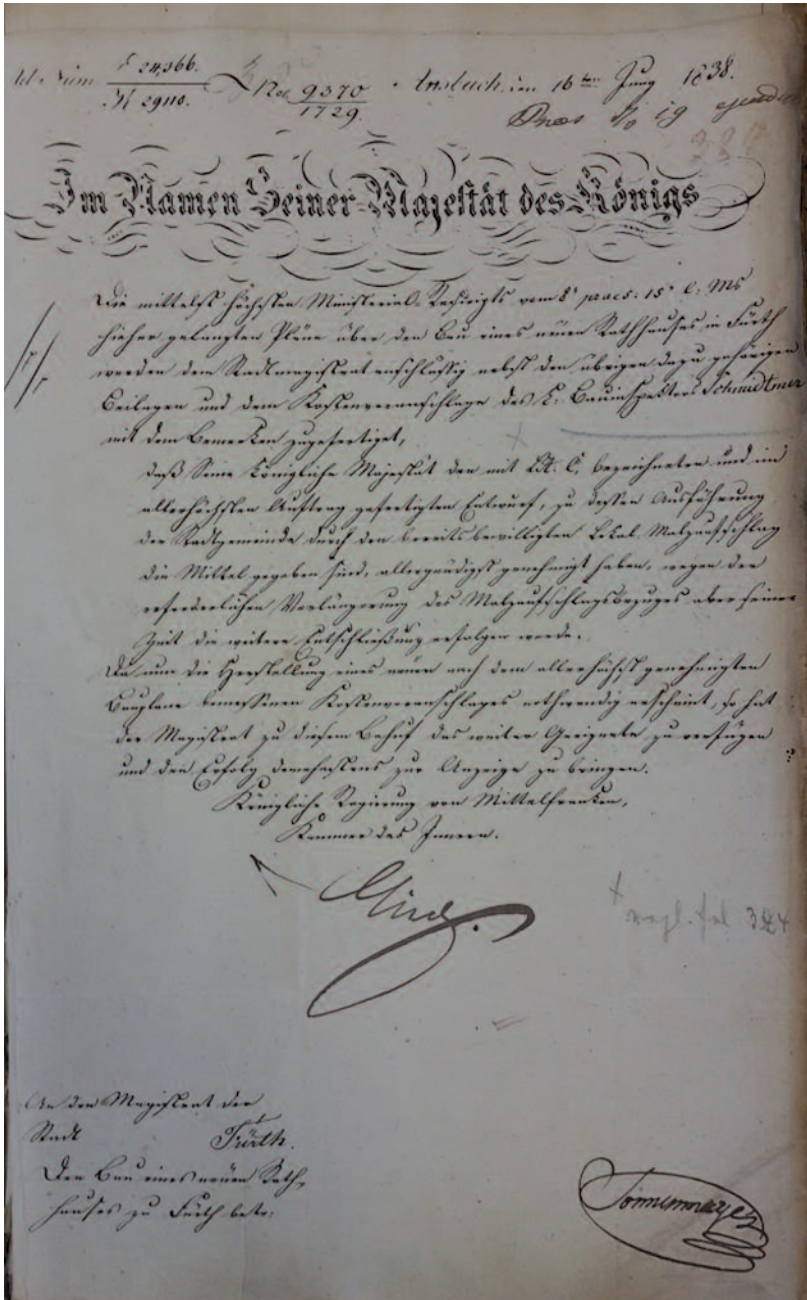 E 24,366.
K 29110.
Rec 9370
1729
Ansbach, den 16ten Juny 1838.
Praes
Im Namen Seiner Majestät des Königs
Die mittelst höchsten Ministerial-Rescripts vom 8t praes: 15t l: Ms
hieher gelangten Pläne über den Bau eines neuen Rathhauses in Fürth
werden dem Stadtmagistrat anschlüssig nebst den übrigen dazu gehörigen
Beilagen und dem Kostenvoranschlage des K. Bauinspektors Schmidtner
mit dem Bemerken zugefertiget,
daß Seine Königliche Majestät den mit Lit. C, bezeichneten und im
allerhöchsten Auftrag gefertigten Entwurf, zu dessen Ausführung
der Stadtgemeinde durch den bereits bewilligten Lokal Malzaufschlag
die Mittel gegeben sind, allergnädigst genehmigt haben, wegen der
erforderlichen Verlängerung des Malzaufschlagsbezuges aber seiner
Zeit die weitere Entschließung erfolgen werde.
Da nun die Herstellung eines neuen nach dem allerhöchst genehmigten
Bauplane bemessenen Kostenvoranschlages nothwendig erscheint, so hat
der Magistrat zu diesem Behuf das weiter Geeignete zu verfügen
und den Erfolg demnächstens zur Anzeige zu bringen.
Königliche Regierung von Mittelfranken,
Kammer des Innern.
vergl. fol 324
An den Magistrat der
Stadt Fürth.
Den Bau eines neuen Rath-
hauses zu Fürth betr:
Sonnenmayer